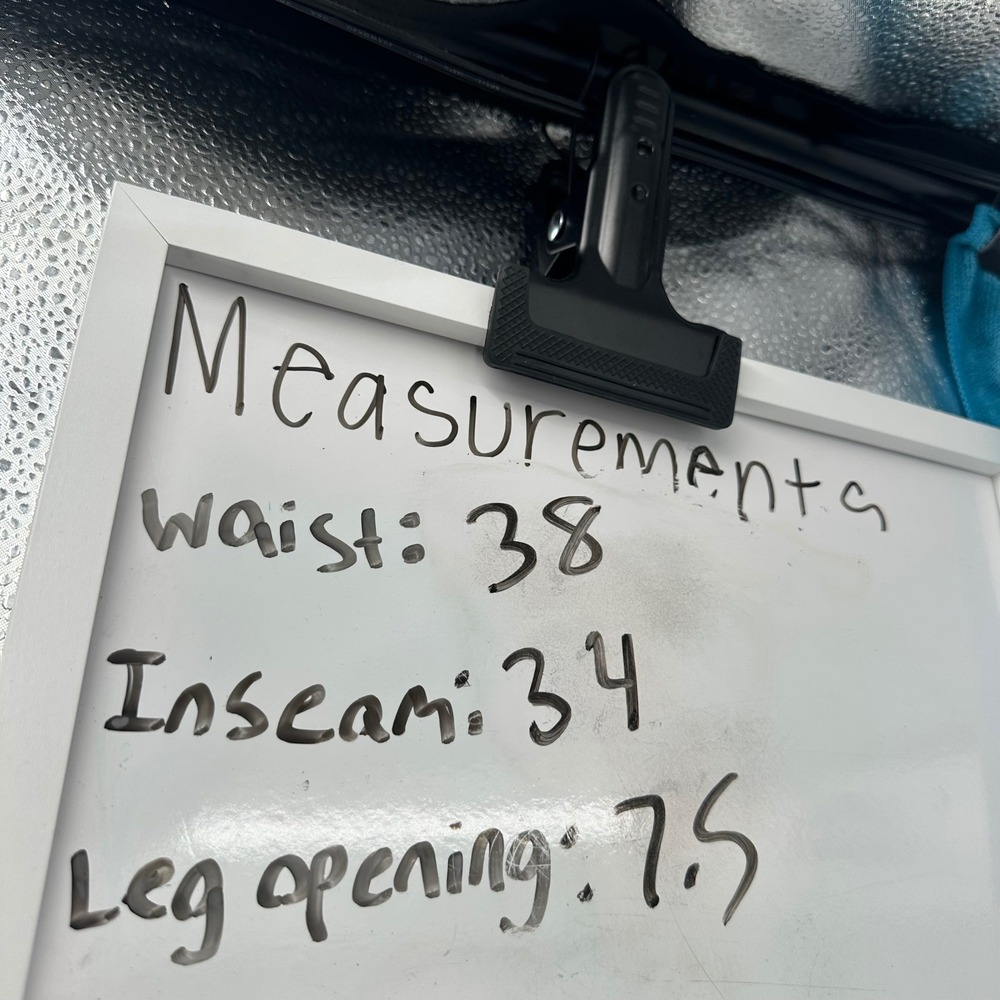 Measurements
Waist: 38
Inseam: 34
Leg opening: 7.5